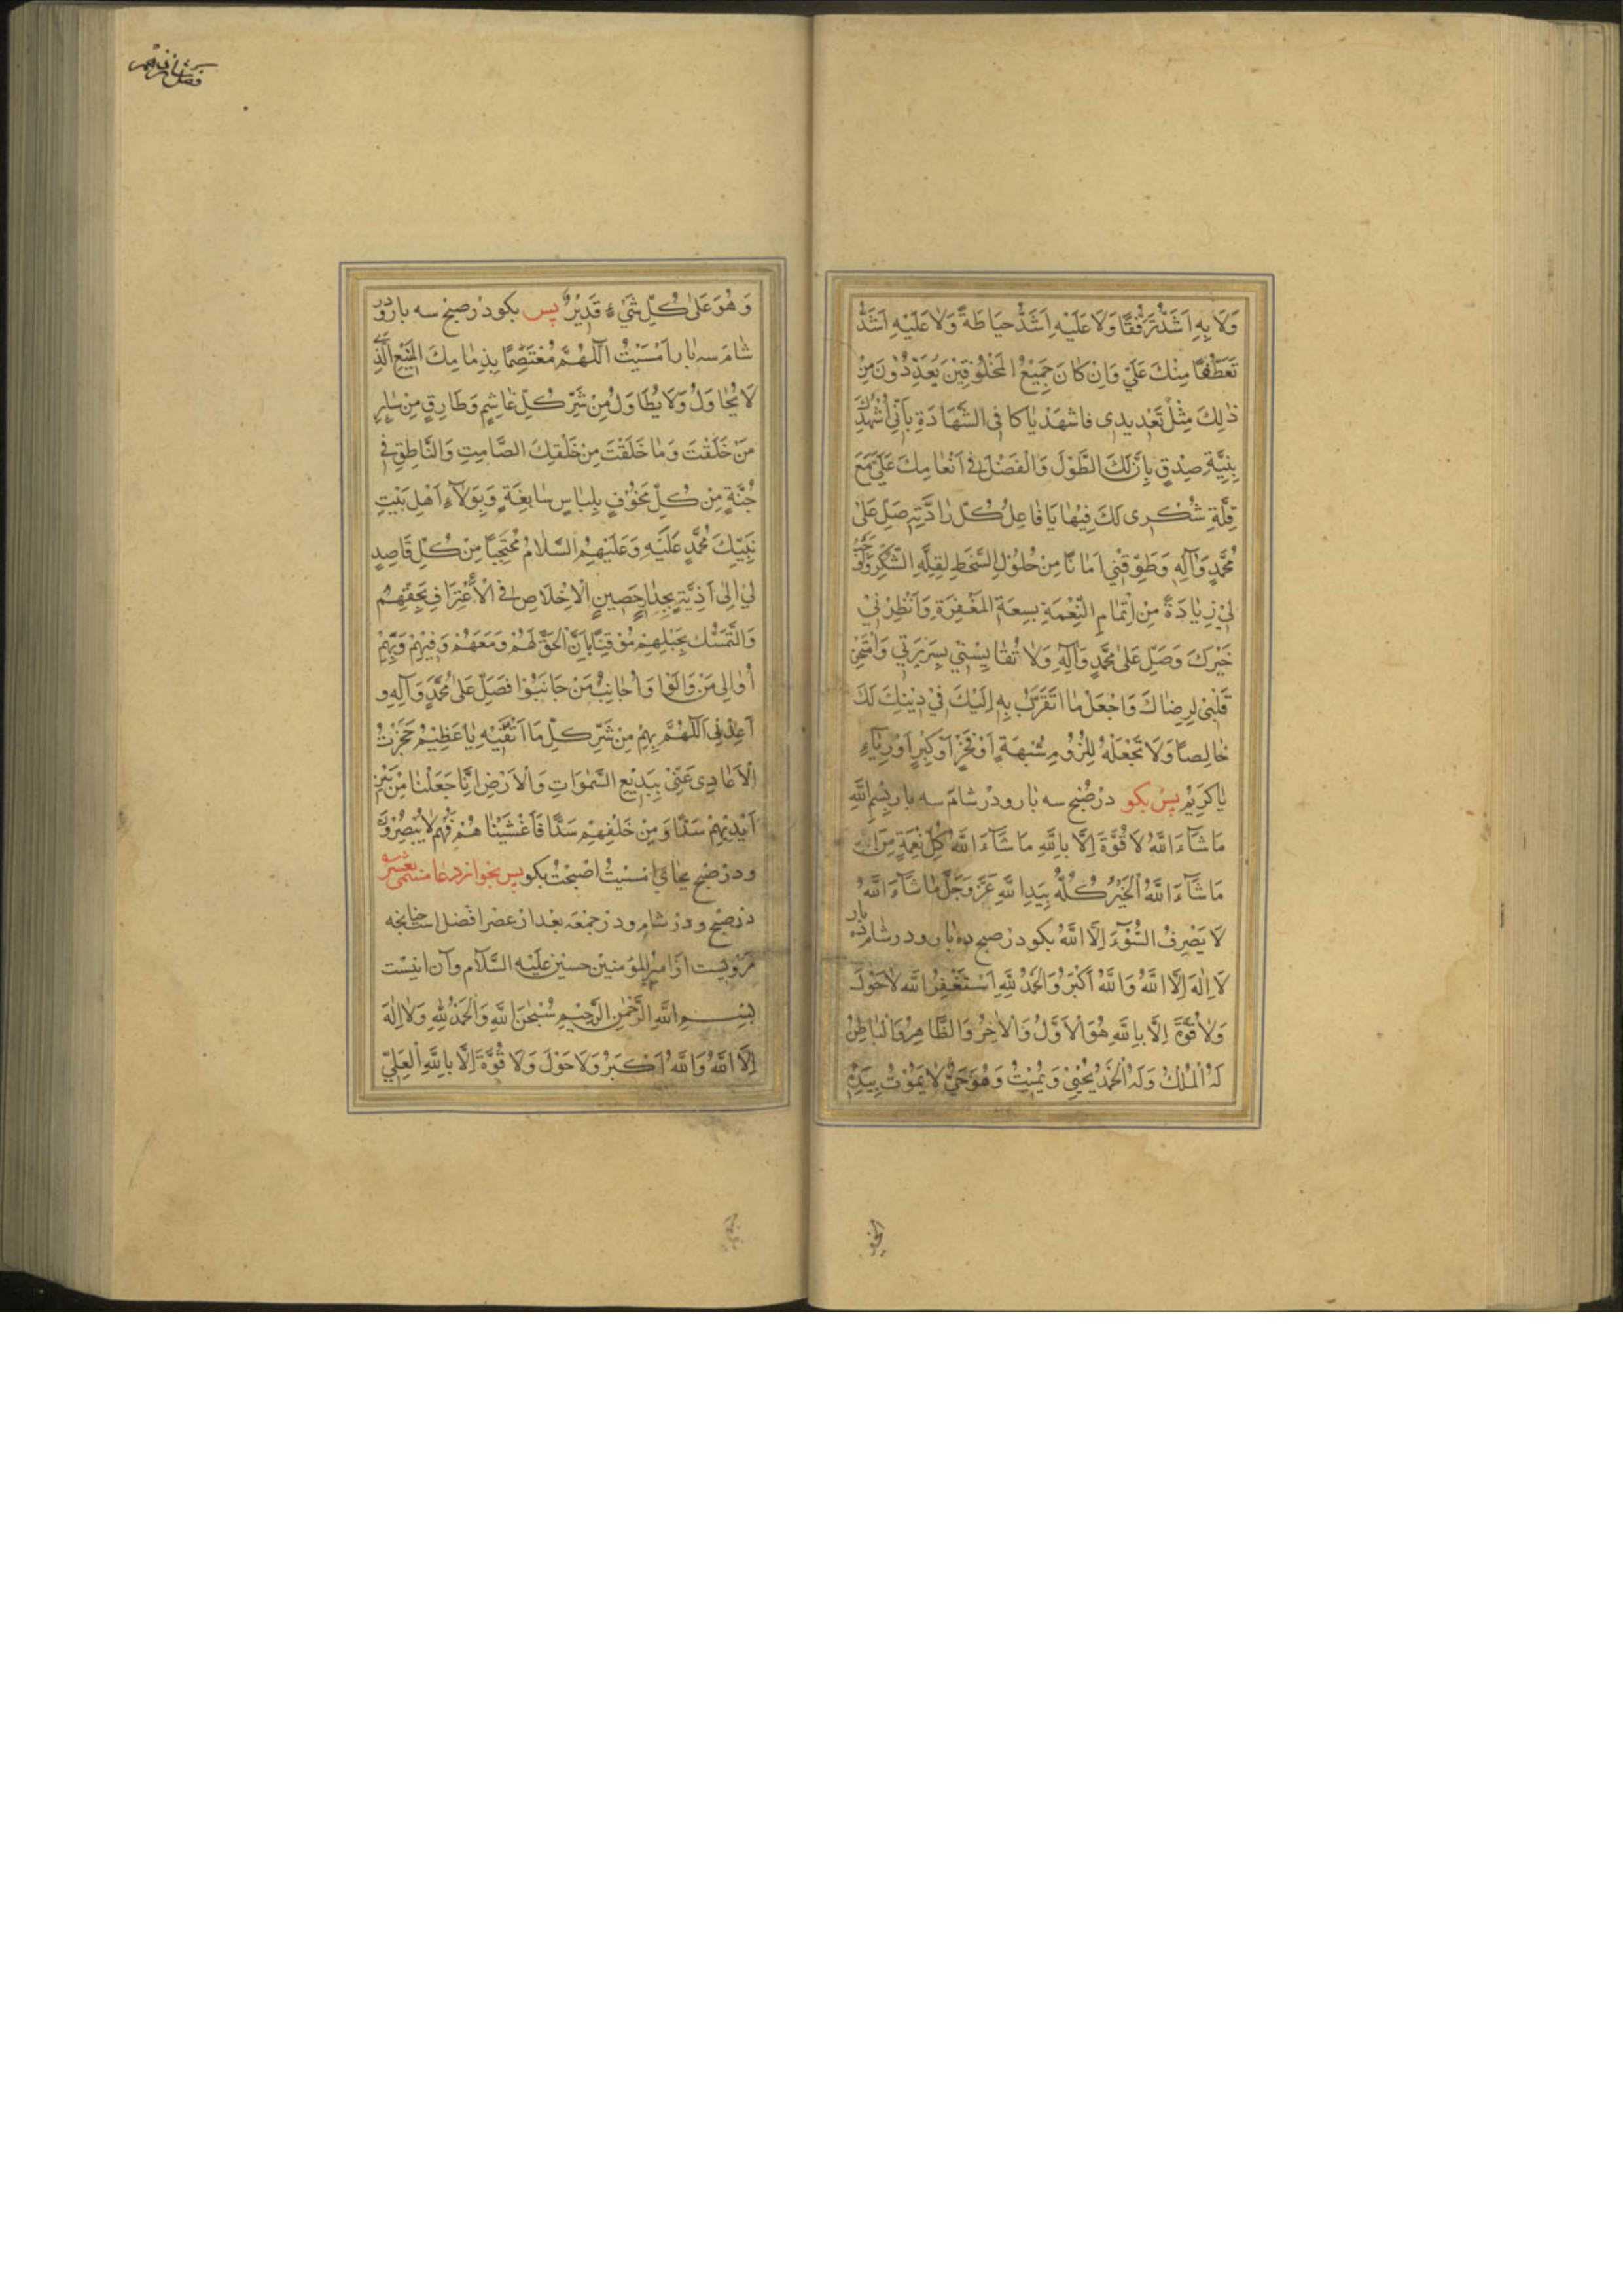 وَلَا بِهِ اَشَدُّ تَرَفُّقًا وَلَا عَلَيْهِ اَشَدُّ حِيَاطَةً وَلَا عَلَيْهِ اَشَدُّ
تَعَطُّفًا مِنْكَ عَلَيَّ وَاِنْ كَانَ جَمِيْعُ الْمَخْلُوْقِيْنَ يُعَدِّدُوْنَ مِنْ
ذٰلِكَ مِثْلَ تَعْدِيدِى فاشهَدْ يَا كافِى الشَّهَادَةِ بِاَنِّي اُشْهِدُكَ
بِنِيَّةِ صِدْقٍ بِاَنَّ لَكَ الطَّوْلَ وَالْفَضْلَ فِي اَنْعَامِكَ عَلَيَّ مَعَ
قِلَّةِ شُكْرِى لَكَ فِيْهَا يَا فَاعِلَ كُلِّ اِرَادَتِهِ صَلِّ عَلَى
مُحَمَّدٍ وَآلِهِ وَطَوِّقْنِي اَمَانًا مِنْ حُلُوْلِ السَّخَطِ لِقِلَّةِ الشُّكْرِ وَاَوْجِبْ
لِيْ زِيَادَةً مِنْ اِتْمَامِ النِّعْمَةِ بِسِعَةِ الْمَغْفِرَةِ وَاَنْظِرْنِيْ
خَيْرَكَ وَصَلِّ عَلَى مُحَمَّدٍ وَآلِهِ وَلَا تُقَايِسْنِي بِسَرِيْرَتِي وَامْتَحِنْ
قَلْبِيْ لِرِضَاكَ وَاجْعَلْ مَا اَتَقَرَّبُ بِهِ اِلَيْكَ فِيْ دِيْنِكَ لَكَ
خَالِصًا وَلَا تَجْعَلْهُ لِلُزُوْمِ شُبْهَةٍ اَوْ فَخْرٍ اَوْ كِبْرٍ اَوْ رِيَآءٍ
يَا كَرِيْمُ پس بكو در صُبح سه بار و در شام سه بار بِسْمِ اللّٰهِ
مَا شَآءَ اللّٰهُ لَا قُوَّةَ اِلَّا بِاللّٰهِ مَا شَآءَ اللّٰهُ كُلُّ نِعْمَةٍ مِنَ اللّٰهِ
مَا شَآءَ اللّٰهُ الْخَيْرُ كُلُّهُ بِيَدِ اللّٰهِ عَزَّ وَجَلَّ مَا شَآءَ اللّٰهُ
لَا يَصْرِفُ السُّوْءَ اِلَّا اللّٰهُ بكو در صبح ده بار و در شام ده بار
لَا اِلٰهَ اِلَّا اللّٰهُ وَاللّٰهُ اَكْبَرُ وَالْحَمْدُ لِلّٰهِ اَسْتَغْفِرُ اللّٰهَ لَا حَوْلَ
وَلَا قُوَّةَ اِلَّا بِاللّٰهِ هُوَ الْاَوَّلُ وَالْاٰخِرُ وَالظَّاهِرُ وَالْبَاطِنُ
لَهُ الْمُلْكُ وَلَهُ الْحَمْدُ يُحْيِيْ وَيُمِيْتُ وَهُوَ حَيٌّ لَا يَمُوْتُ بِيَدِهِ
الخير
وَهُوَ عَلَى كُلِّ شَيْءٍ قَدِيْرٌ پس بكو در صبح سه بار و در
شام سه بار اَمْسَيْتُ اَللّٰهُمَّ مُعْتَصِمًا بِذِمَامِكَ الْمَنِيْعِ الَّذِي
لَا يُحَاوَلُ وَلَا يُطَاوَلُ مِنْ شَرِّ كُلِّ غَاشِمٍ وَطَارِقٍ مِنْ سَايِرِ
مَنْ خَلَقْتَ وَمَا خَلَقْتَ مِنْ خَلْقِكَ الصَّامِتِ وَالنَّاطِقِ فِي
جُنَّةٍ مِنْ كُلِّ مَخُوْفٍ بِلِبَاسٍ سَابِغَةٍ وَبِوَلَآءِ اَهْلِ بَيْتِ
نَبِيِّكَ مُحَمَّدٍ عَلَيْهِ وَعَلَيْهِمُ السَّلَامُ مُحْتَجِبًا مِنْ كُلِّ قَاصِدٍ
لِيْ اِلٰى اَذِيَّةٍ بِجِدَارٍ حَصِيْنٍ الْاِخْلَاصِ فِي الْاِعْتِرَافِ بِحَقِّهِمْ
وَالتَّمَسُّكِ بِحَبْلِهِمْ مُوْقِنًا بِاَنَّ الْحَقَّ لَهُمْ وَمَعَهُمْ وَفِيْهِمْ وَبِهِمْ
اُوَالِى مَنْ وَالَوْا وَاُجَانِبُ مَنْ جَانَبُوْا فَصَلِّ عَلَى مُحَمَّدٍ وَآلِهِ وَ
اَعِذْنِى اَللّٰهُمَّ بِهِمْ مِنْ شَرِّ كُلِّ مَا اَتَّقِيْهِ يَا عَظِيْمُ حَجَزْتُ
الْاَعَادِى عَنِّيْ بِبَدِيْعِ السَّمٰوَاتِ وَالْاَرْضِ اِنَّا جَعَلْنَا مِنْ بَيْنِ
اَيْدِيْهِمْ سَدًّا وَمِنْ خَلْفِهِمْ سَدًّا فَاَغْشَيْنَاهُمْ فَهُمْ لَا يُبْصِرُوْنَ
و در صبح بجاى اَمْسَيْتُ اَصْبَحْتُ بكو پس بخوان دعا مسمى بعشره
در صبح و در شام و در جمعه بعد از عصر افضل است چنانچه
مرويست از امير المؤمنين حسين عليه السّلام و آن اينست
بِسْمِ اللّٰهِ الرَّحْمٰنِ الرَّحِيْمِ سُبْحَنَ اللّٰهِ وَالْحَمْدُ لِلّٰهِ وَلَا اِلٰهَ
اِلَّا اللّٰهُ وَاللّٰهُ اَكْبَرُ وَلَا حَوْلَ وَلَا قُوَّةَ اِلَّا بِاللّٰهِ الْعَلِيِّ